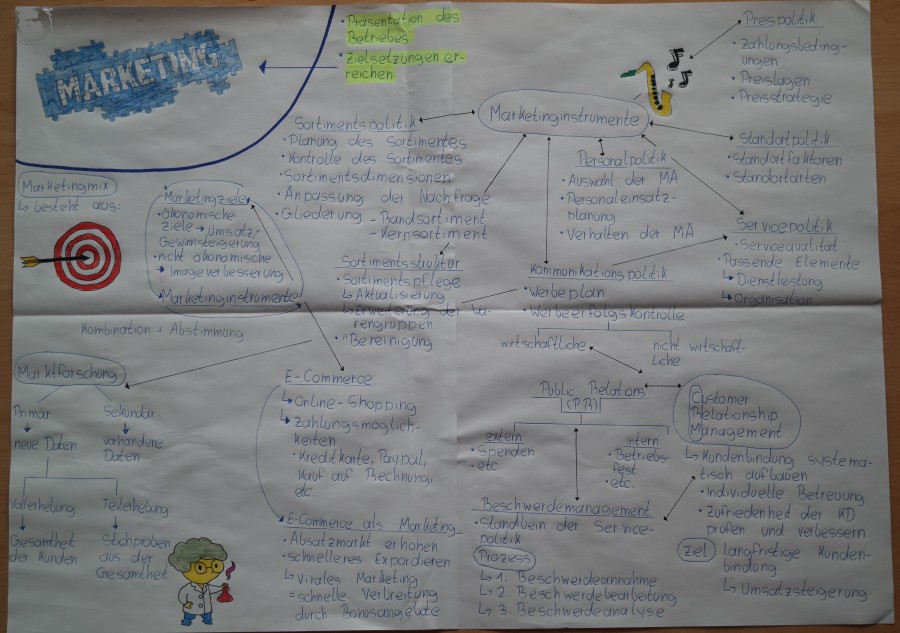 MARKETING
• Präsentation des
Betriebes
• Zielsetzungen er-
reichen
Preispolitik
• Zahlungsbeding-
ungen
• Preislagen
• Preisstrategie
Marketinginstrumente
Sortimentspolitik
• Planung des Sortimentes
• Kontrolle des Sortimentes
• Sortimentsdimensionen
• Anpassung der Nachfrage
• Gliederung - Randsortiment
- Kernsortiment
Personalpolitik
• Auswahl der MA
• Personaleinsatz-
planung
• Verhalten der MA
Standortpolitik
• Standortfaktoren
• Standortarten
Servicepolitik
• Servicequalität
Passende Elemente
↳ Dienstleistung
↳ Organisation
Marketingmix
↳ besteht aus:
Marketingziele
• ökonomische
ziele → Umsatz,
Gewinnsteigerung
• nicht ökonomische
→ Imageverbesserung
Marketinginstrumente
Kombination + Abstimmung
Sortimentsstruktur
• Sortimentspflege
↳ Aktualisierung
↳ Erweiterung der Wa-
rengruppen
• " Bereinigung
Kommunikationspolitik
• Werbeplan
• Werbeerfolgskontrolle
wirtschaftliche
nicht wirtschaft-
liche
Marktforschung
Primär
neue Daten
Sekundär
vorhandene
Daten
Vollerhebung
Gesamtheit
der Kunden
Teilerhebung
Stichproben
aus der
Gesamtheit
E-Commerce
↳ Online-Shopping
↳ Zahlungsmöglich-
keiten
• Kreditkarte, Paypal,
Kauf auf Rechnung,
etc.
E-Commerce als Marketing
• Absatzmarkt erhöhen
• schnelleres Exportieren
↳ Virales Marketing
= schnelle Verbreitung
durch Bonusangebote
Public Relations
(PR)
extern
• Spenden
• etc.
intern
• Betriebs-
fest
• etc.
Beschwerdemanagement
• Standbein der Service-
politik
Prozess
↳ 1. Beschwerdeannahme
↳ 2. Beschwerdebearbeitung
↳ 3. Beschwerdeanalyse
Customer
Relationship
Management
↳ Kundenbindung systema-
tisch aufbauen
• Individuelle Betreuung
• Zufriedenheit der KD
prüfen und verbessern
Ziel langfristige Kunden-
bindung
↳ Umsatzsteigerung